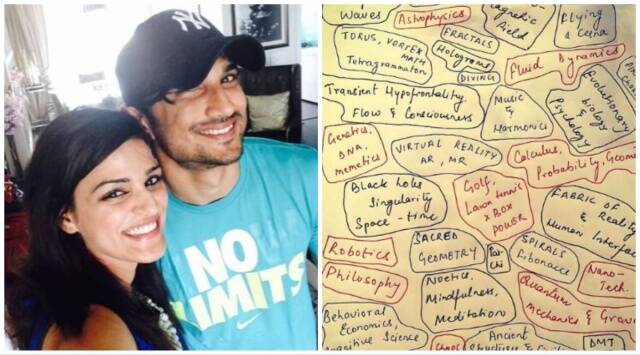 NY
NO
LIMITS
Waves
Astrophysics
Field
Flying
TORUS, VORTEX
MATH
Tetragrammaton
FRACTALS
Holograms
DIVING
Fluid Dynamics
Transient Hypofrontality
Flow & Consciousness
MUSIC
&
Harmonics
Evolutionary
biology
&
Psychology
Genetics,
DNA,
memetics
VIRTUAL REALITY
AR, MR
Calculus,
Probability, Geome
Black hole
Singularity
Space-time
Golf,
Lawn tennis
X BOX
POWER
FABRIC OF
Reality
&
Human Interface
Robotics
Philosophy
SACRED
GEOMETRY
Tai-
Chi
SPIRALS
Fibonacci
Nano-
Tech.
NOETICS,
Mindfulness,
Meditation
Quantum
Mechanics & Grav
Behavioral
Economics,
Cognitive Science
Chaos
Ancient
DMT